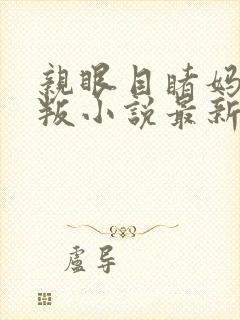 親眼目睹妈
叛小説最新
盧导